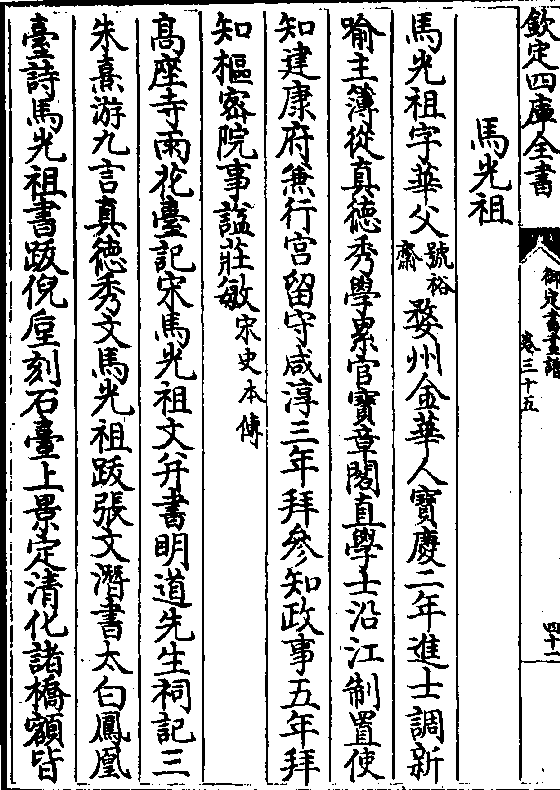 欽定四庫全書
御定書畫譜
卷三十五
四十一
馬光祖
馬光祖字華父號裕齋婺州金華人寶慶二年進士調新
喻主簿從真德秀學累官寶章閣直學士沿江制置使
知建康府兼行宫留守咸淳三年拜參知政事五年拜
知樞密院事謚莊敏宋史本傳
髙座寺雨花臺記宋馬光祖文并書明道先生祠記三
朱熹游九言真德秀文馬光祖跋張文潛書太白鳳凰
臺詩馬光祖書跋倪垕刻石臺上景定清化諸橋額皆